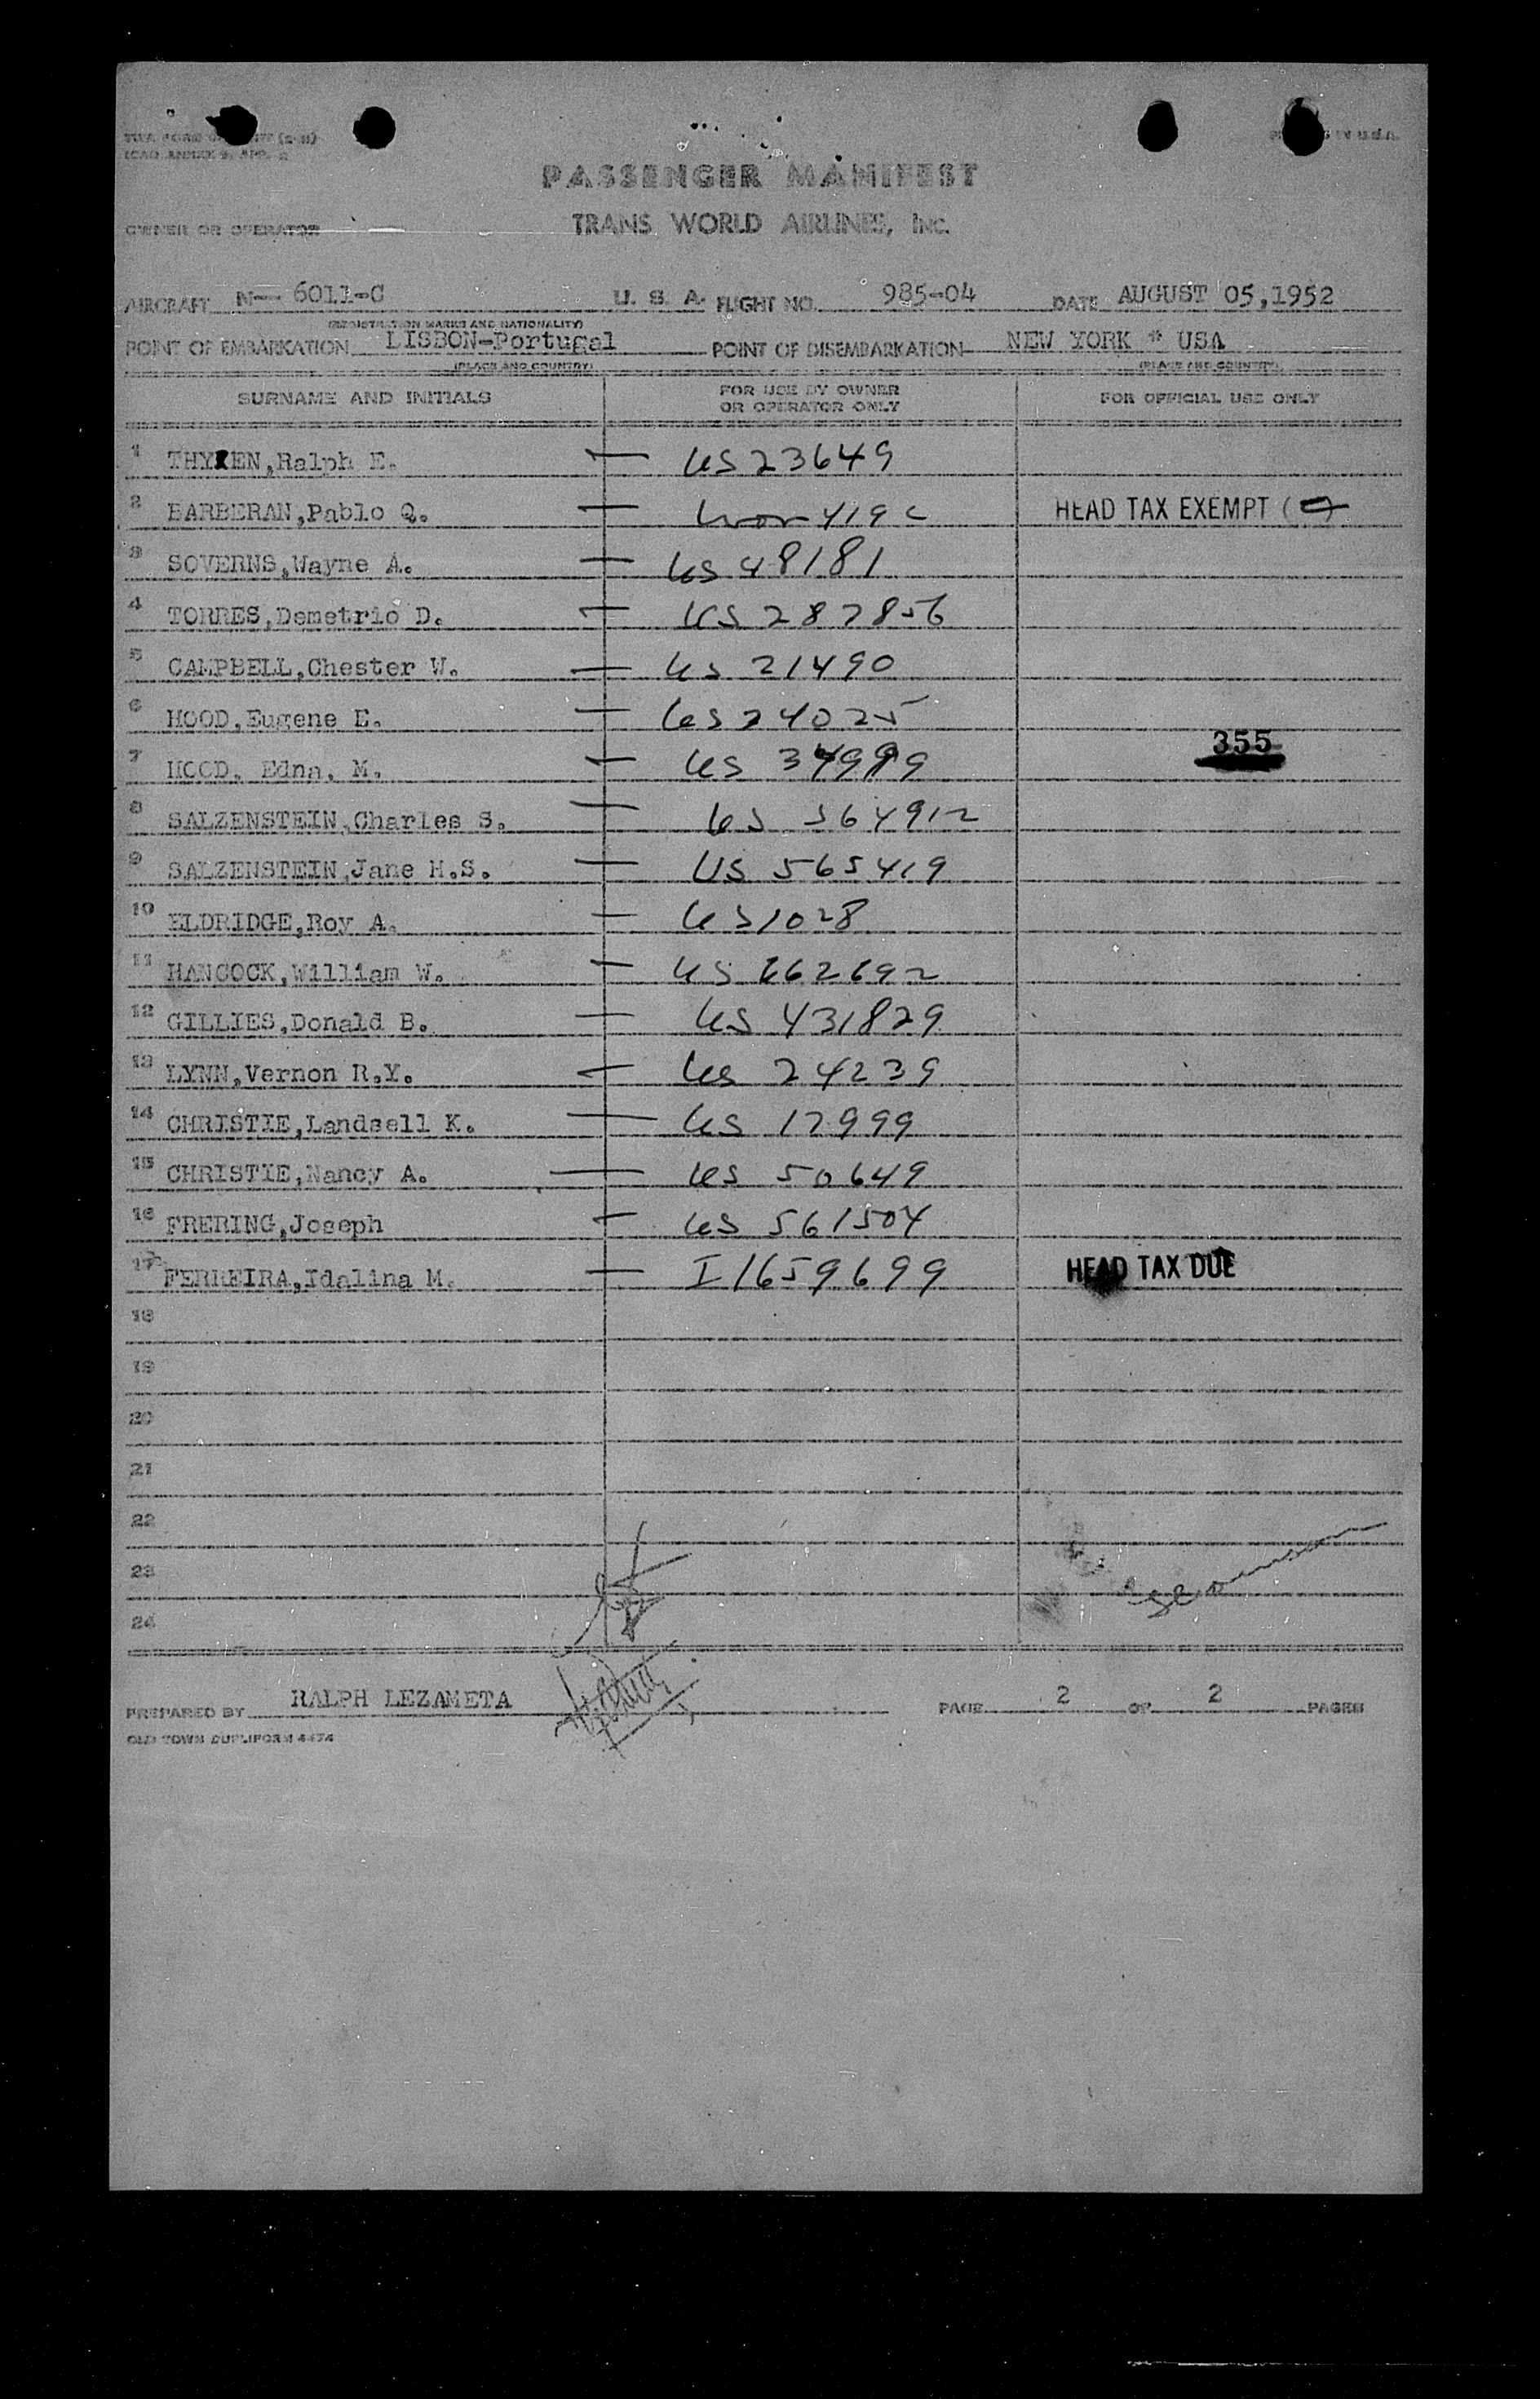 TWA FORM
ICAO ANNEX 9, APP. 2
U.S.A.
PASSENGER MANIFEST
OWNER OR OPERATOR TRANS WORLD AIRLINES, INC.
AIRCRAFT N-- 6011-C U. S. A. FLIGHT NO. 985-04 DATE AUGUST 05,1952
(REGISTRATION MARKS AND NATIONALITY)
POINT OF EMBARKATION LISBON-Portugal POINT OF DISEMBARKATION NEW YORK * USA
(PLACE AND COUNTRY) (PLACE AND COUNTRY)
SURNAME AND INITIALS FOR USE BY OWNER OR OPERATOR ONLY FOR OFFICIAL USE ONLY
1 Ralph E. — US 23649
2 BARBERAN,Pablo Q. — HEAD TAX EXEMPT
3 SOVERNS,Wayne A. — US 48181
4 TORRES,Demetrio D. — US 287856
5 CAMPBELL,Chester W. — US 21490
6 HOOD,Eugene E. — US 24025
355
7 HOOD, Edna, M. — US
8 SALZENSTEIN,Charles S. — US 564912
9 SALZENSTEIN,Jane H.S. — US 565419
10 ELDRIDGE,Roy A. — US 1028
11 HANCOCK,William W. — US 662692
12 GILLIES,Donald B. — US 431829
13 LYNN,Vernon R.Y. — US 24239
14 CHRISTIE,Landsell K. — US 17999
15 CHRISTIE,Nancy A. — US 50649
16 FRERING,Joseph — US 561504
17 FERREIRA,Idalina M. — I1659699 HEAD TAX DUE
18
19
20
21
22
23
24
PREPARED BY RALPH LEZAMETA PAGE 2 OF 2 PAGES
OLD TOWN DUPLIFORM 4474